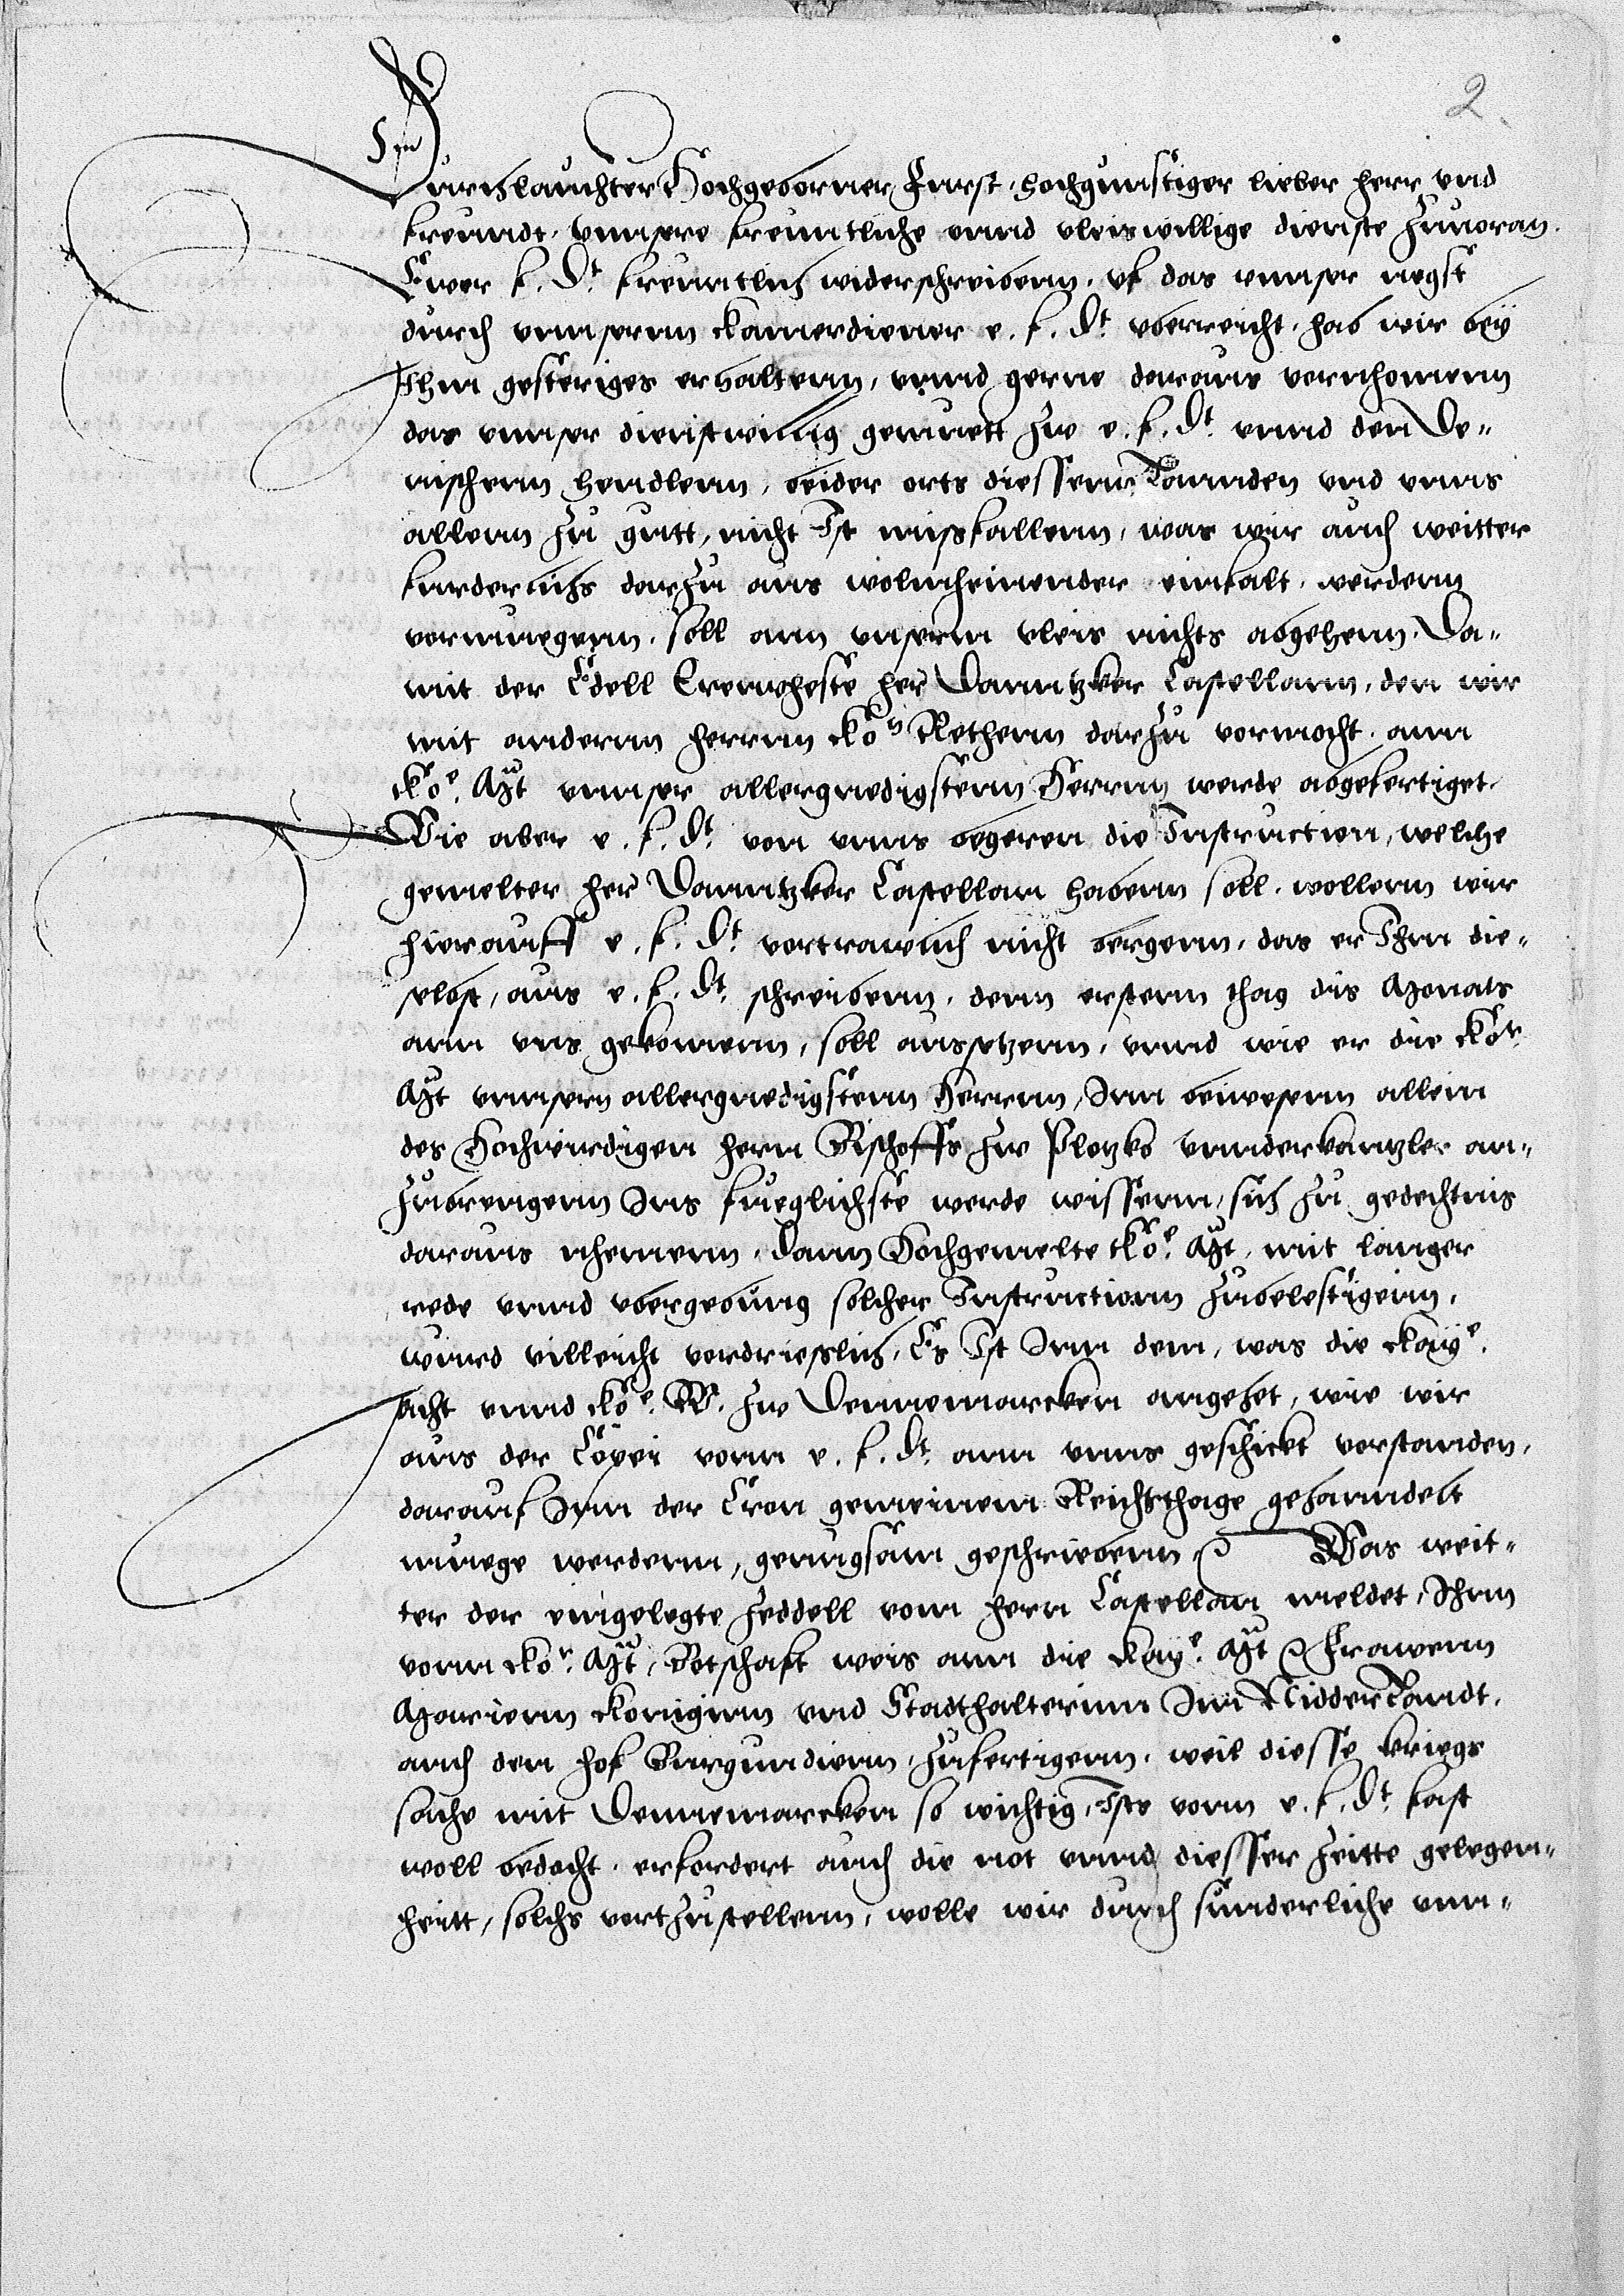 2
Durchlauchter Hochgeborner Furst, hochgunstiger lieber herr vnd
freundt, vnnsere freuntliche vnnd vleiswillige dienste zuuoran.
Ewer f. Dt. freuntlich widerschreibenn, vf das vnnser negst
durch vnnsernn Kamerdiener e. f. Dt. vberreicht, hab wir bey
Ihm gesteriges erhaltenn, vnnd gerne daraus vernhomenn
das vnnser dienstwillig gemuett zw e. f. Dt. vnnd den De¬
nischenn hendlenn, beider orts diessenn Lannden vnd vnns
allenn zu gutt, nicht Ist misfallenn, was wir auch weitter
furderlichs darzu aus wolmheinender einfalt, werdenn
vermuegenn, soll ann vnserm vleis nichts abgehenn. Da¬
mit der Edell Erenvheste her Danntzker Castellann, den wir
mit andernn herrnn Kon Rethenn darzu vermocht, ann
Koe. Mt vnnser allergnedigstenn Herrnn werde abgefertiget.
Wie aber e. f. Dt. von vnns begeren die Instruction, welche
gemelter her Danntzker Castellan habenn soll, wollenn wir
hierauff e. f. Dt. vertrawlich nicht bergenn, das er Ihm die¬
selbst, aus e. f. Dt. schreibenn, denn erstenn thag dis Monats
ann vns gekomenn, soll aussetzenn, vnnd wie er die Koe.
Mt vnnsern allergnedigstenn Herrnn, Inn beiwesenn allein
des Hochwirdigen herrn Bischoffs zw Plotzko vnnderkantzler an¬
zubrengenn Ins fueglichste werde wissenn, sich zu gedechtnis
daraus nhemenn, dann Hochgemelte Koe. Mt, mit langer
rede vnnd vbergebung solcher Instructionn zubelestigenn,
wurd villeicht verdrieslich, Es Ist Inn dem, was die Kaye.
Mt vnnd Koe. W. zw Dennemarcken angehet, wie wir
aus der Copei vonn e. f. Dt. ann vnns geschickt verstanden,
darauf Inn der Cron gemeinem Reichsthage gehanndelt
muege werdenn, genugsam geschriebenn etc. Was weit¬
ter der eingelegte Zeddell vom hern Castellan meldet, Ihm
vonn Koe. Mt, Botschaft weis ann die Kaye. Mt etc. Frawenn
Marienn Konigin vnd Stadthalterinn Inn Nidderlandt,
auch den hof Burgundienn, zufertigenn, weil diesse kriegs
sache mit Dennemarcken so wichtig, Ists vonn e. f. Dt. fast
woll bedacht, erfordert auch die not vnnd diesser Zeitte gelegen¬
heitt, solchs vortzustellenn, wolle wir durch sunderliche vnn¬